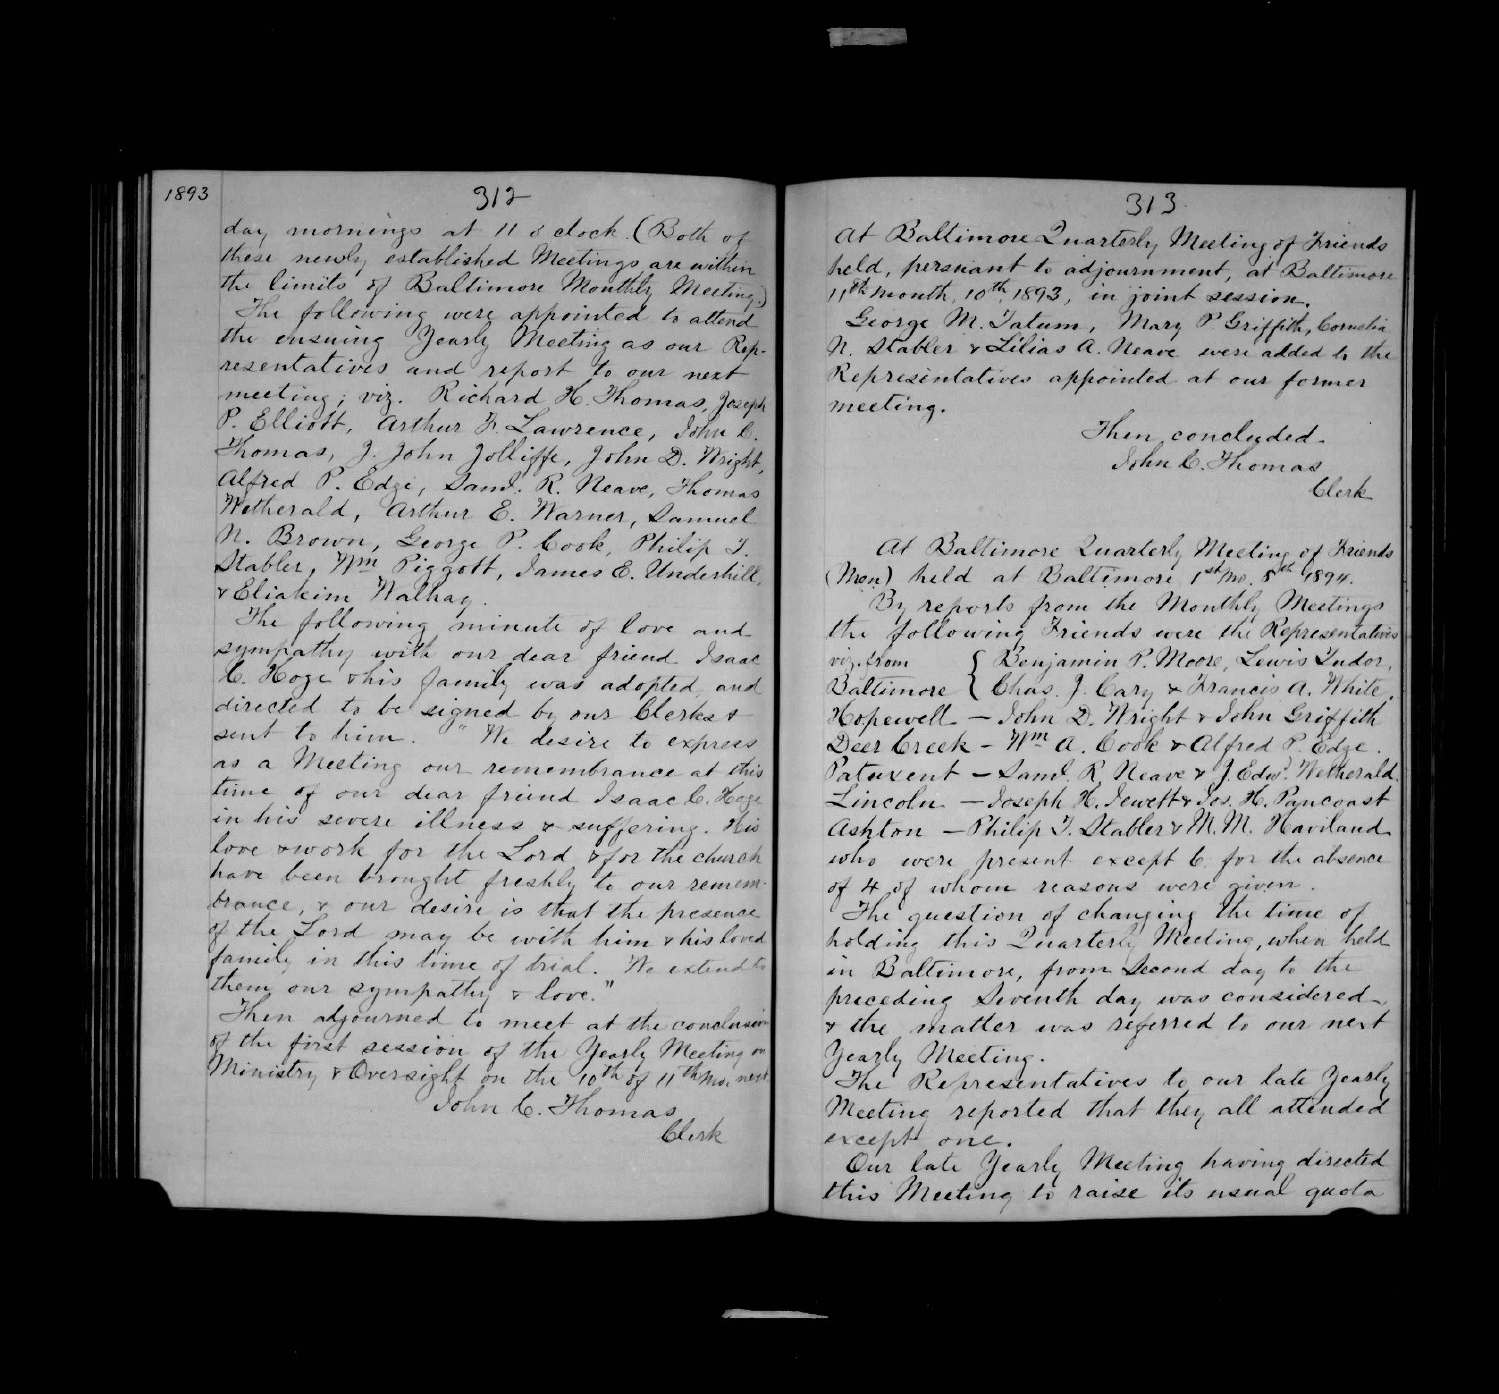 1893
312
day mornings at 11 o clock. (Both of
these newly established Meetings are within
the limits of Baltimore Monthly Meeting.)
The following were appointed to attend
the ensuing Yearly Meeting as our Rep-
resentatives and report to our next
meeting; viz. Richard H. Thomas, Joseph
P. Elliott, Arthur F. Lawrence, John C.
Thomas, J. John Jolliffe, John D. Wright,
Alfred P. Edge, Saml. R. Neave, Thomas
Wetherald, Arthur E. Warner, Samuel
N. Brown, George P. Cook, Philip T.
Stabler, Wm Piggott, James E. Underhill,
& Eliakim Walhay.
The following minute of love and
sympathy with our dear friend Isaac
C. Hoge & his family was adopted, and
directed to be signed by our Clerks &
sent to him. "We desire to express
as a Meeting our remembrance at this
time of our dear friend Isaac C. Hoge
in his severe illness & suffering. His
love & work for the Lord & for the church
have been brought freshly to our remem-
brance, & our desire is that the presence
of the Lord may be with him & his loved
family in this time of trial. We extend to
them our sympathy & love."
Then adjourned to meet at the conclusion
of the first session of the Yearly Meeting on
Ministry & Oversight on the 10th of 11th Mo. next
John C. Thomas
Clerk
313
At Baltimore Quarterly Meeting of Friends
held, persuant to adjournment, at Baltimore
11th Month, 10th, 1893, in joint session.
George M. Tatum, Mary P Griffith, Cornelia
N. Stabler & Lilias A. Neave were added to the
Representatives appointed at our former
meeting.
Then concluded.
John C. Thomas
Clerk
At Baltimore Quarterly Meeting of Friends
(Men) held at Baltimore 1st Mo. 8th 1894.
By reports from the Monthly Meetings
the following Friends were the Representatives
viz. from { Benjamin P. Moore, Lewis Tudor,
Baltimore { Chas. J. Cary & Francis A. White,
Hopewell — John D. Wright & John Griffith
Deer Creek — Wm A. Cook & Alfred P. Edge.
Patuxent — Saml. R. Neave & J. Edw. Wetherald.
Lincoln — Joseph H. Jewett & Jos. H. Pancoast
Ashton — Philip T. Stabler & M. M. Haviland
who were present except 6 for the absence
of 4 of whom reasons were given.
The question of changing the time of
holding this Quarterly Meeting, when held
in Baltimore, from Second day to the
preceding Seventh day was considered
& the matter was referred to our next
Yearly Meeting.
The Representatives to our late Yearly
Meeting reported that they all attended
except one.
Our late Yearly Meeting having directed
this Meeting to raise its usual quota